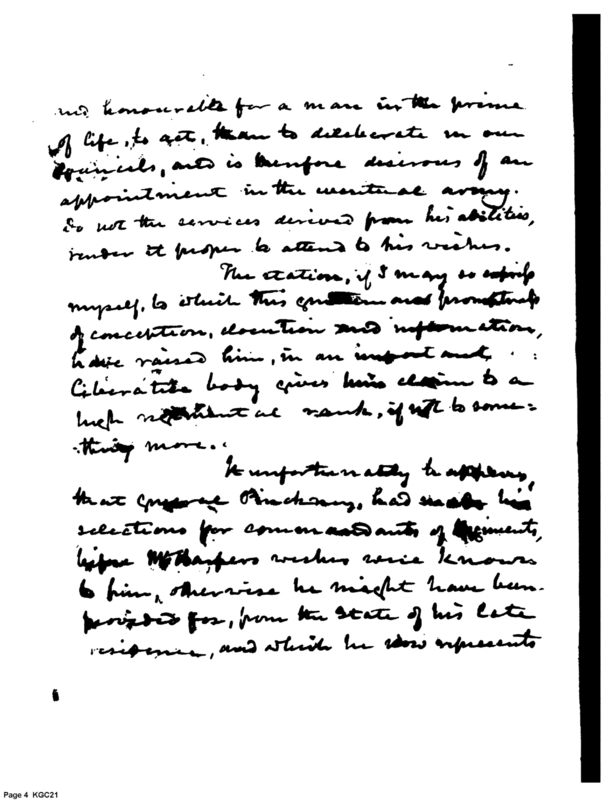 and honourable for a man in the prime
of life, to act, than to deliberate in our
Councils, and is therefore desirous of an
appointment in the eventual army.
Do not the services derived from his abilities,
render it proper to attend to his wishes.
The station, if I may so express
myself, to which this and promptness
of conception, elocution and information,
have raised him, in an important
liberative body gives him claim to a
high regimental rank, if not to some=
thing more.
It unfortunately happens,
that general Pinckney, had made his
selections for commandants of Regiments,
before Mr Harpers wishes were known
to him, otherwise he might have been
provided for, from the State of his late
residence, and which he now represents
Page 4 KGC21